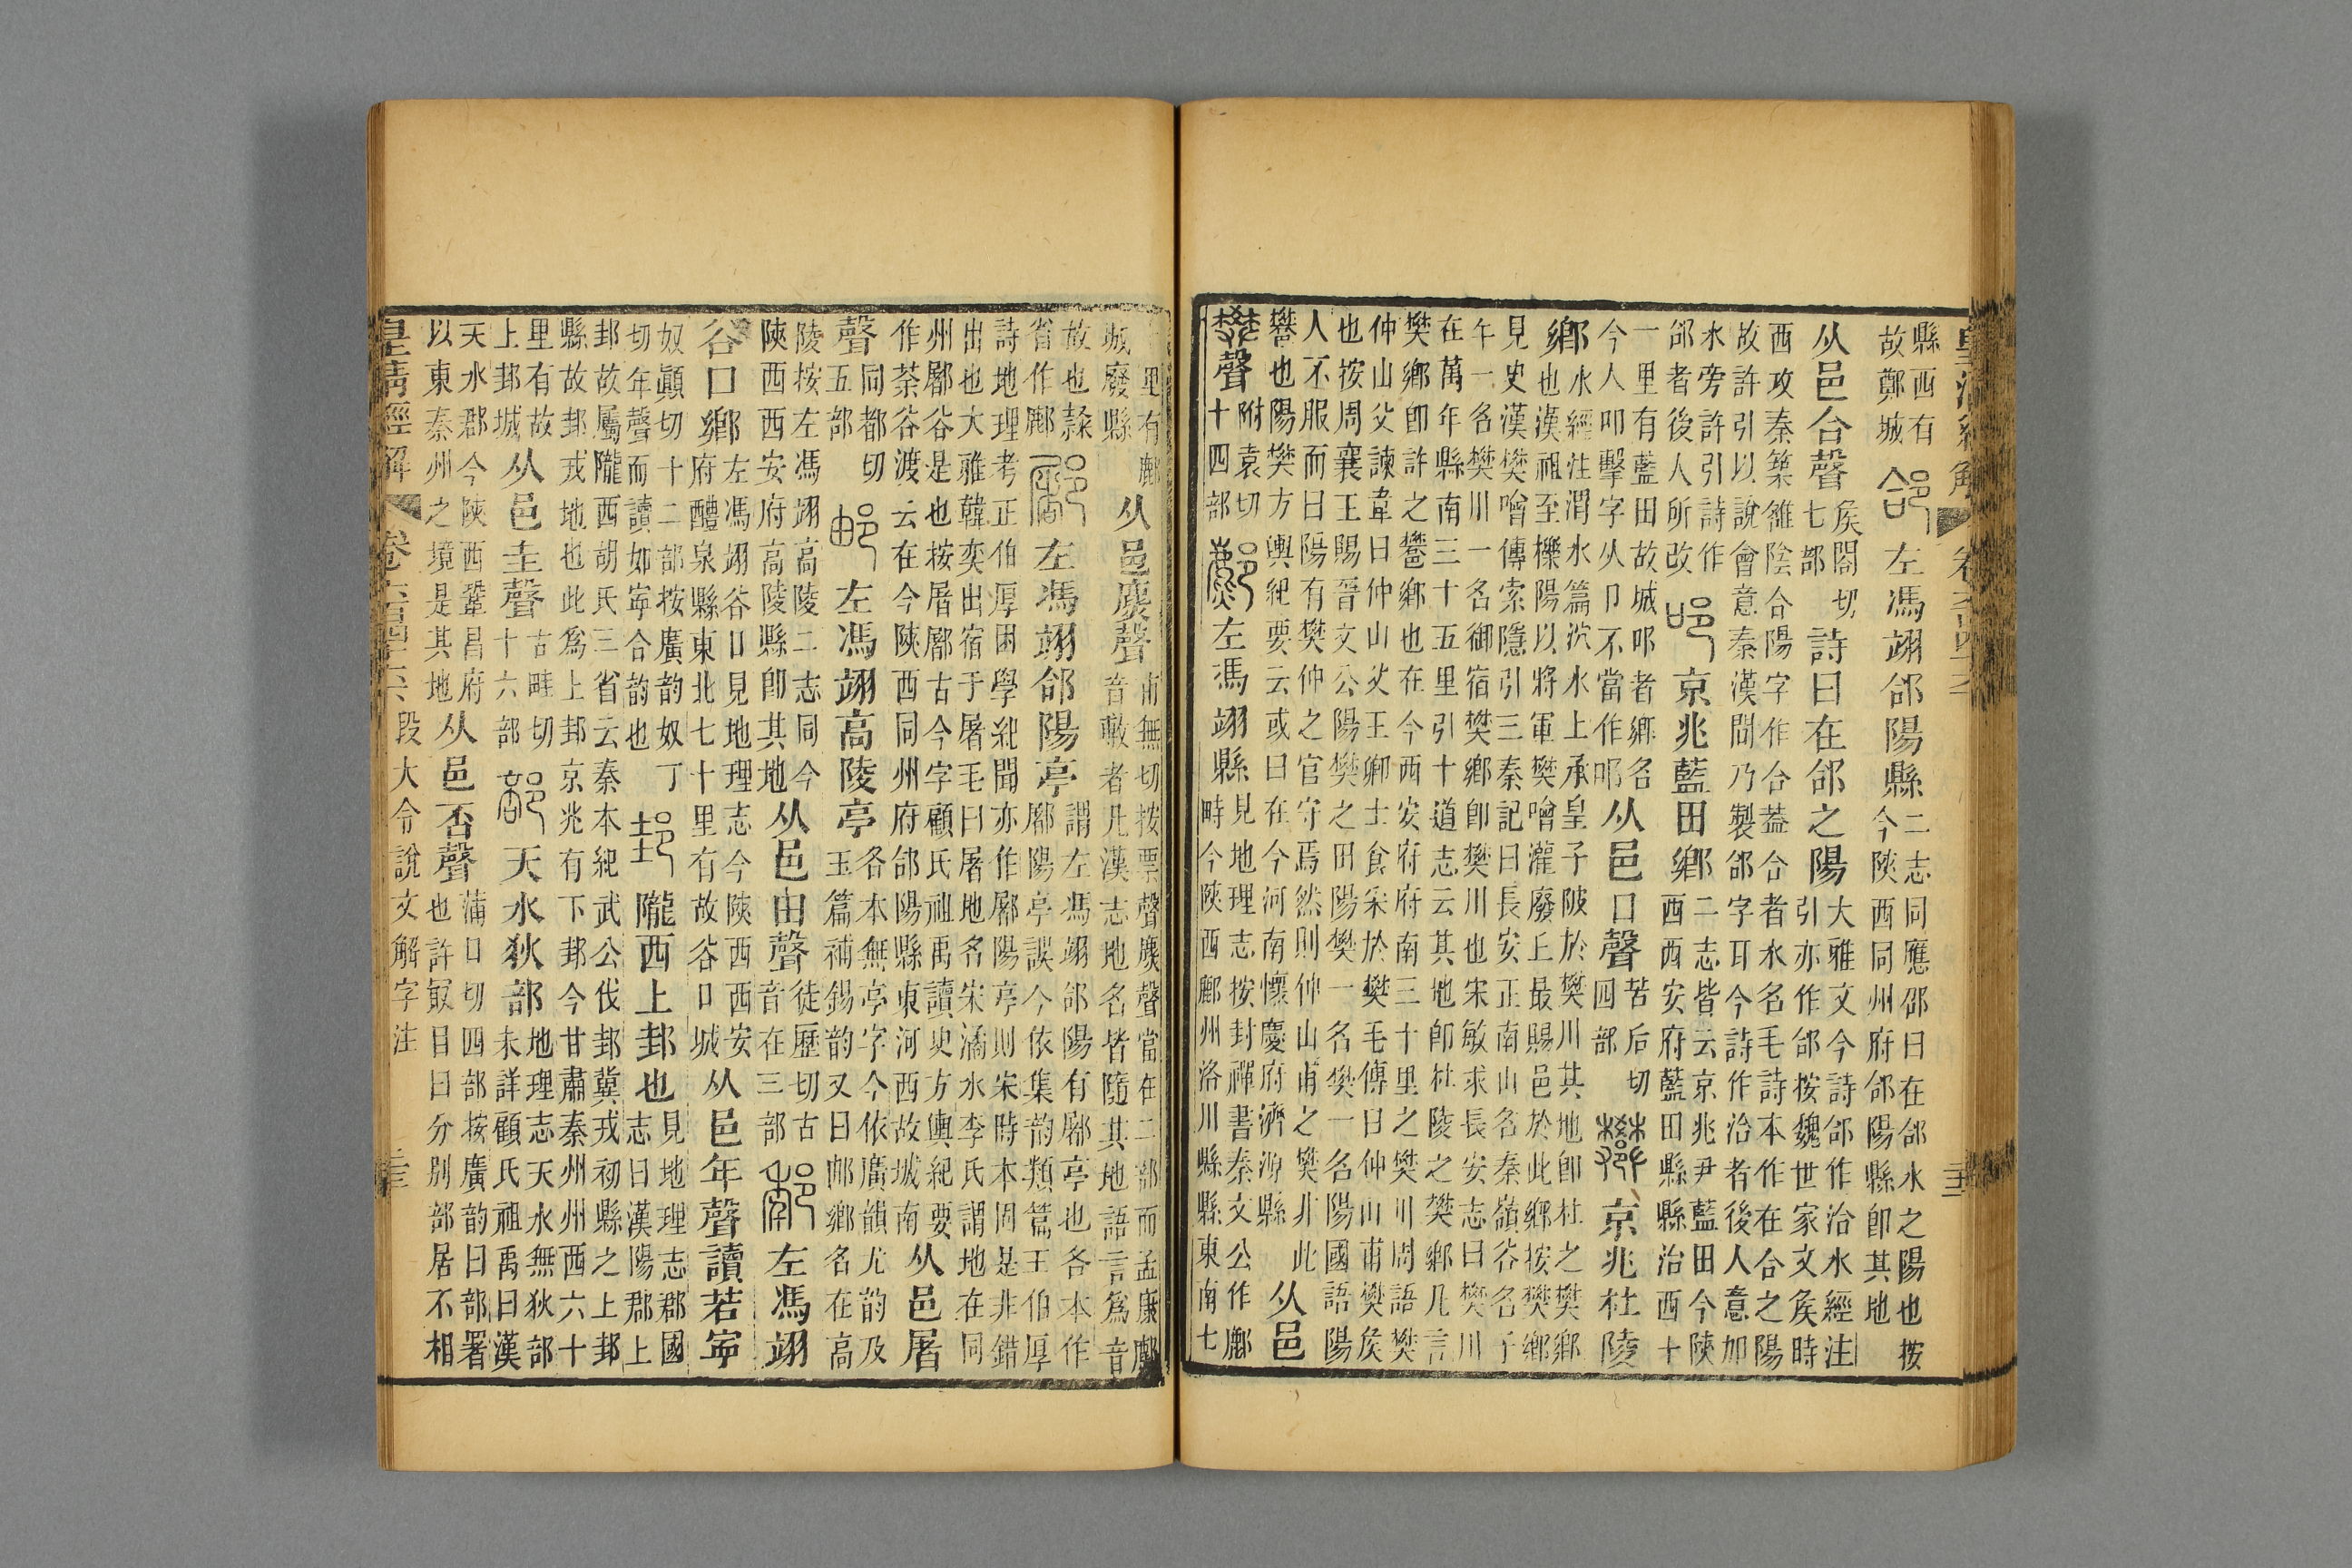 縣西有
故鄭城
左馮翊郃陽縣
二志同應邵曰在郃水之陽也按
今陝西同州府郃陽縣卽其地
从邑合聲
矦閤切
七部
詩曰在郃之陽
大雅文今詩郃作洽水經注
引亦作郃按魏世家文矦時
西攻秦築雒陰合陽字作合葢合者水名毛詩本作在合之陽
故許引以說會意秦漢閒乃製郃字耳今詩作洽者後人意加
水旁許引詩作
郃者後人所改
京兆藍田鄉
二志皆云京兆尹藍田今陝
西西安府藍田縣縣治西十
一里有藍田故城䣌者鄉名
今人叩擊字从卩不當作䣌
从邑口聲
苦后切
四部
京兆杜陵
鄉
水經注渭水篇沇水上承皇子陂於樊川其地卽杜之樊鄉
也漢祖至櫟陽以將軍樊噲灌廢丘最賜邑於此鄉按樊鄉
見史漢樊噲傳索隱引三秦記曰長安正南山名秦嶺谷名子
午一名樊川一名御宿樊鄉卽樊川也宋敏求長安志曰樊川
在萬年縣南三十五里引十道志云其地卽杜陵之樊鄉凡言
樊鄉卽許之鄉也在今西安府府南三十里之樊川周語樊
仲山父諫韋曰仲山父王卿士食采於樊毛傳曰仲山甫樊矦
也按周襄王賜晉文公陽樊之田陽樊一名樊一名陽國語陽
人不服而曰陽有樊仲之官守焉然則仲山甫之樊非此
也陽樊方輿紀要云或曰在今河南懷慶府濟源縣
从邑
聲
附袁切
十四部
左馮翊縣
見地理志按封禪書秦文公作鄜
畤今陝西鄜州洛川縣縣東南七
里有鄜
城廢縣
从邑麃聲
甫無切按票聲麃聲當在二部而孟康鄜
音敷者凡漢志地名皆隨其地語言爲音
故也隸
省作鄜
左馮翊郃陽亭
謂左馮翊郃陽有鄌亭也各本作
鄌陽亭誤今依集韵類篇王伯厚
詩地理考正伯厚困學紀聞亦作鄌陽亭則宋時本固是非錯
出也大雅韓奕出宿于屠毛曰屠地名宋潏水李氏謂地在同
州鄌谷是也按屠鄌古今字顧氏祖禹讀史方輿紀要
作荼谷渡云在今陝西同州府郃陽縣東河西故城南
从邑屠
聲
同都切
五部
左馮翊高陵亭
各本無亭字今依廣韻尤韵及
玉篇補錫韵又曰邮鄉名在高
陵按左馮翊高陵二志同今
陝西西安府高陵縣卽其地
从邑由聲
徒歷切古
音在三部
左馮翊
谷口鄉
左馮翊谷口見地理志今陝西西安
府醴泉縣東北七十里有故谷口城
从邑年聲讀若寧
奴顚切十二部按廣韵奴丁
切年聲而讀如寧合韵也
隴西上邽也
見地理志郡國
志曰漢陽郡上
邽故屬隴西胡氏三省云秦本紀武公伐邽冀戎初縣之上邽
縣故邽戎地也此爲上邽京兆有下邽今甘肅秦州州西六十
里有故
上邽城
从邑圭聲
古畦切
十六部
天水狄部
地理志天水無狄部
未詳顧氏祖禹曰漢
天水郡今陝西鞏昌府
以東秦州之境是其地
从邑否聲
蒲口切四部按廣韵曰部署
也許叙目曰分別部居不相
皇清經解
卷六百四十六
段大令說文解字注